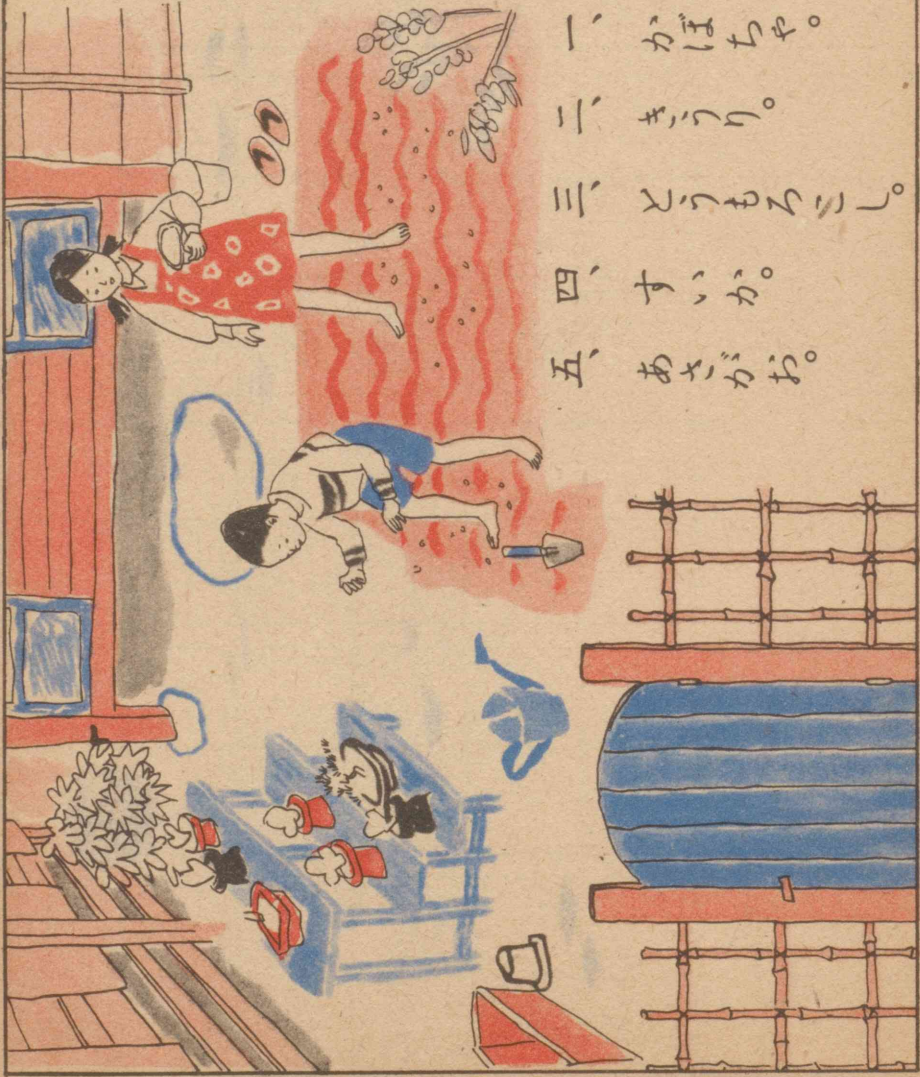 一、かぼちゃ。
二、きうり。
三、とうもろこし。
四、すいか。
五、あさがお。